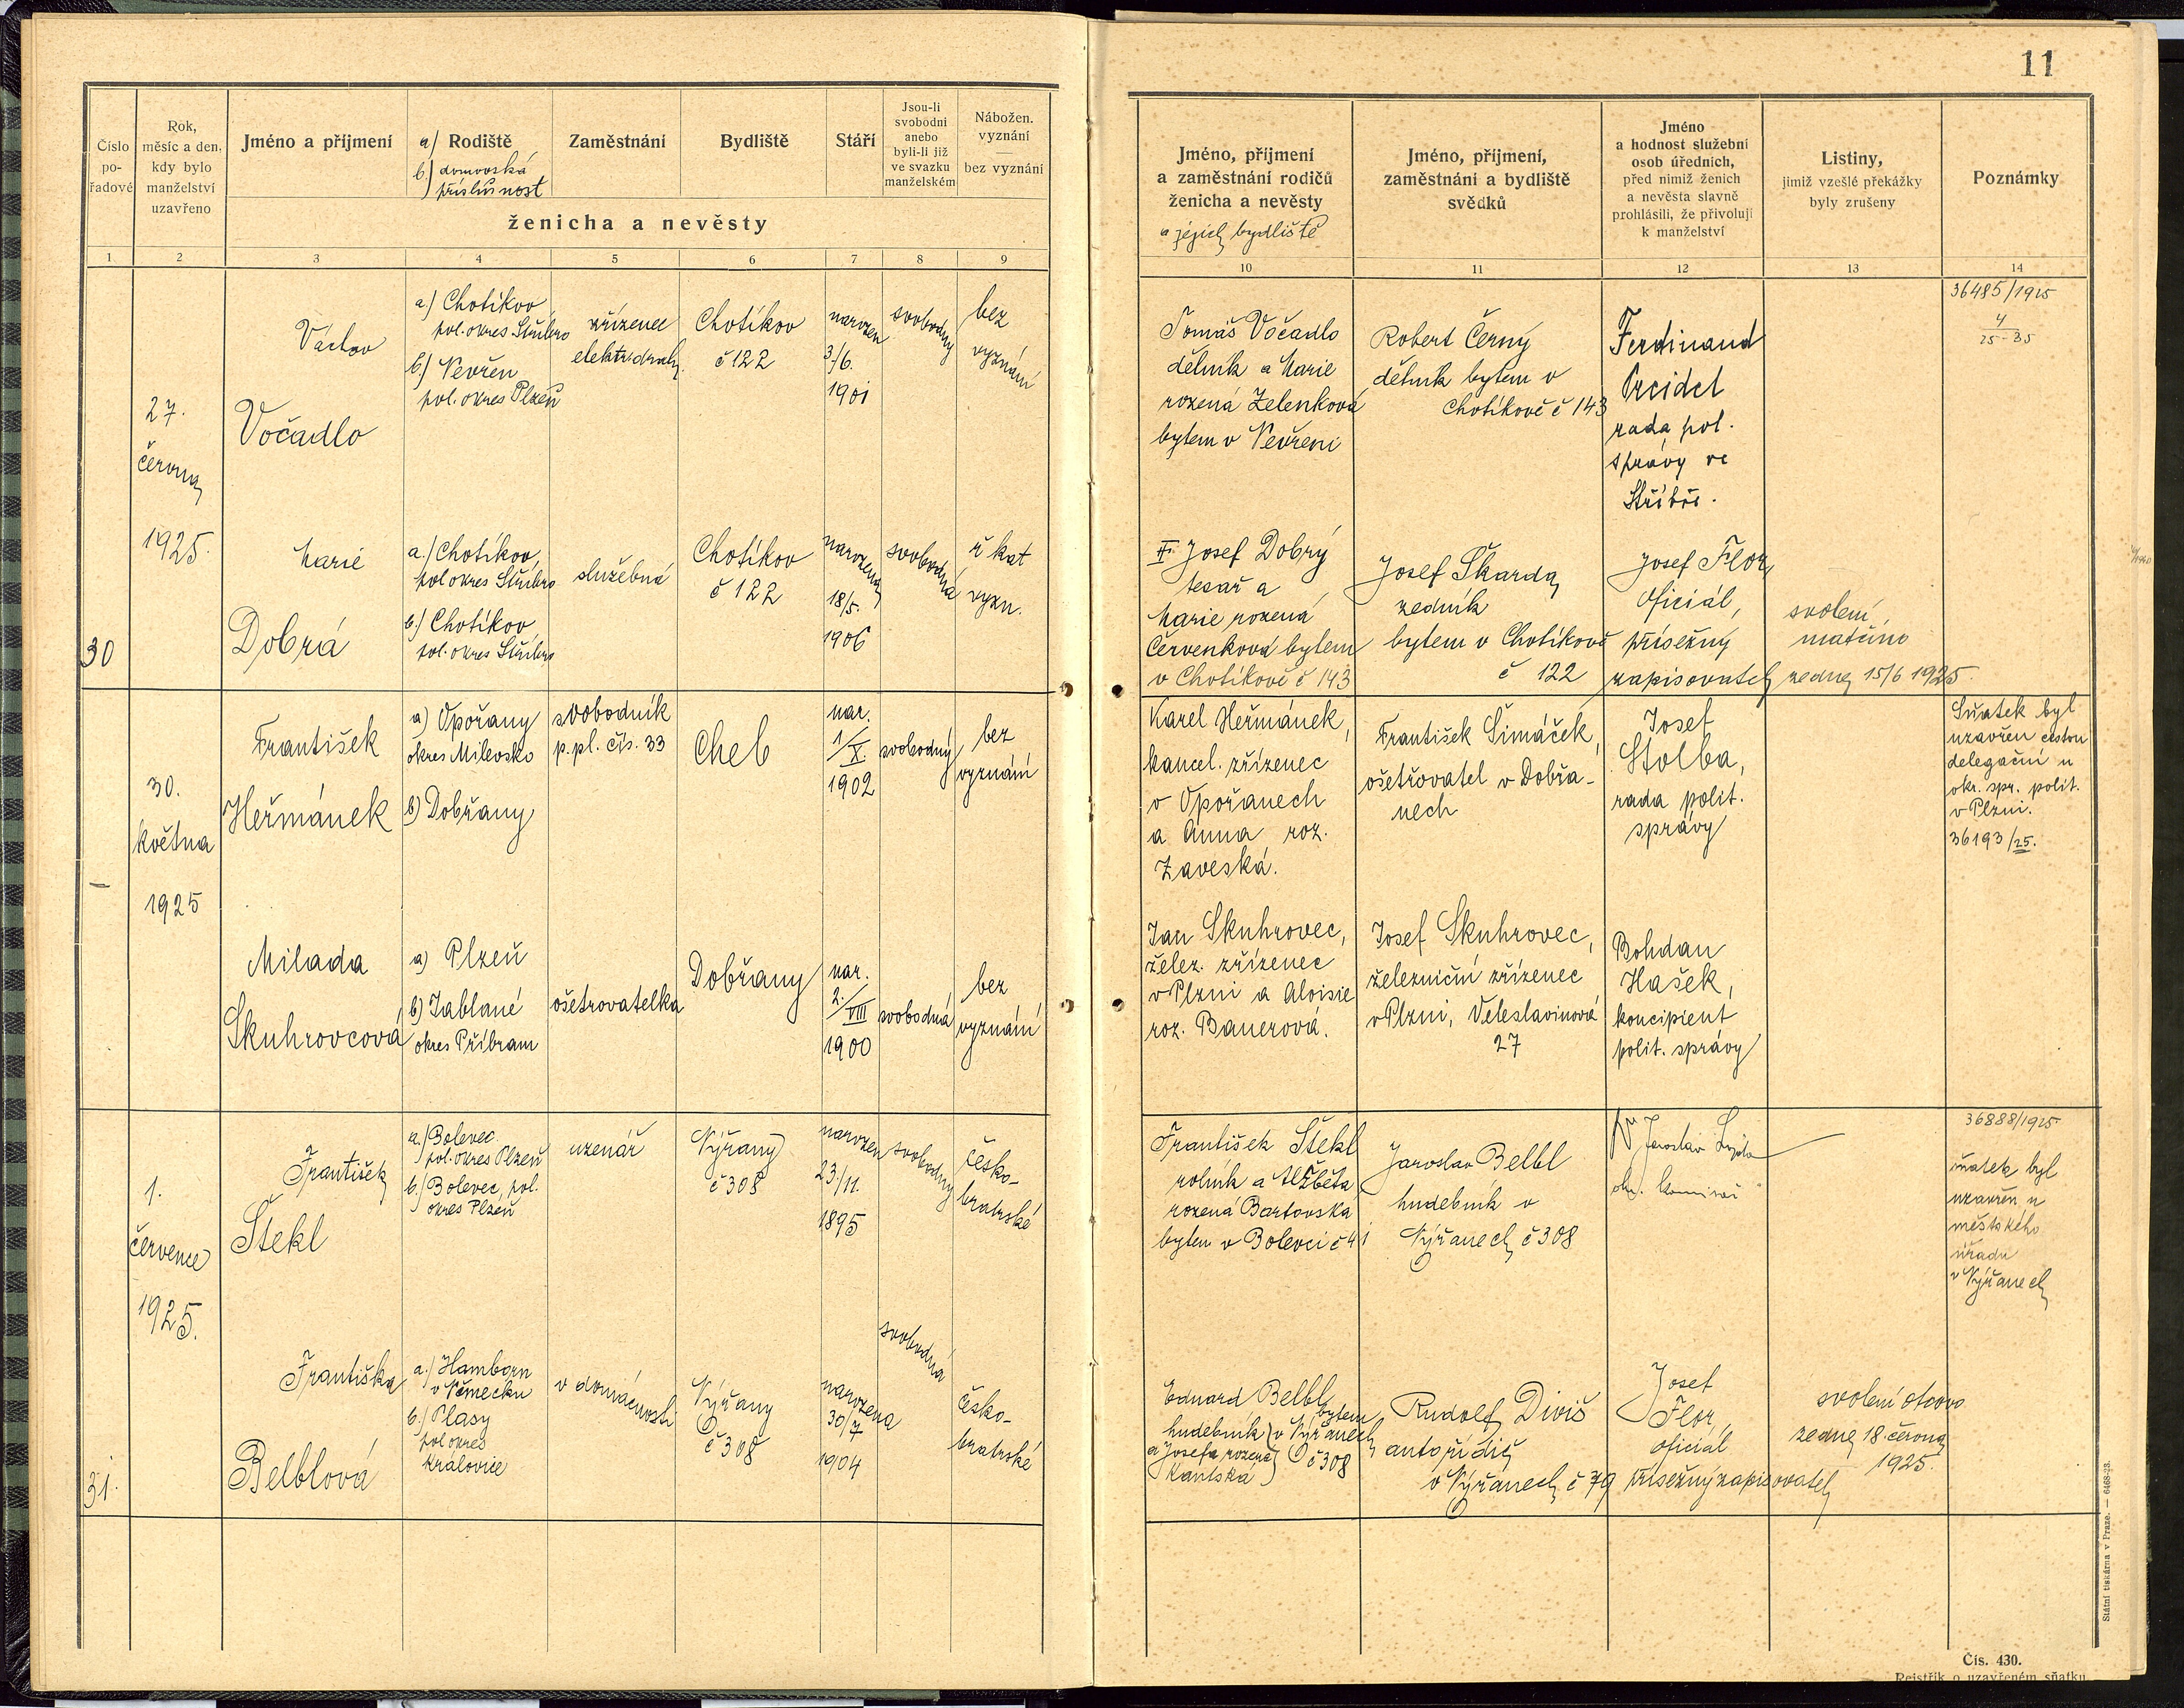 11
Číslo po-řadové
Rok, měsíc a den, kdy bylo manželství uzavřeno
Jméno a příjmení
a/ Rodiště
b.) domovská příslušnost
Zaměstnání
Bydliště
Stáří
Jsou-li svobodni anebo byli-li již ve svazku manželském
Nábožen. vyznání
bez vyznání
ženicha a nevěsty
Jméno, příjmení a zaměstnání rodičů ženicha a nevěsty
a jejich bydliště
Jméno, příjmení, zaměstnání a bydliště svědků
Jméno a hodnost služební osob úředních, před nimiž ženich a nevěsta slavně prohlásili, že přivolují k manželství
Listiny, jimiž vzešlé překážky byly zrušeny
Poznámky
1 2 3 4 5 6 7 8 9 10 11 12 13 14
30
27.
června
1925.
Václav
Vočadlo
a.) Chotíkov
pol. okres Stříbro
b.) Nevřeň
pol. okres Plzeň
zřízenec
elektr. dráhy
Chotíkov
č 122
narozen
3/6.
1901
svobodný
bez
vyznání
Tomáš Vočadlo
dělník a Marie
rozená Zelenková
bytem v Nevřeni
Robert Černý
dělník bytem v
Chotíkově č 143
Ferdinand
rada pol.
správy ve
Stříbře.
36485/1925
4
25-35
Marie
Dobrá
a.) Chotíkov,
pol okres Stříbro
b.) Chotíkov
pol. okres Stříbro
služebná
Chotíkov
č 122
narozena
18/5.
1906
svobodná
ř kat
vyzn.
Josef Dobrý
tesař a
Marie rozená
Červenková bytem
v Chotíkově č 143
Josef Škarda
zedník
bytem v Chotíkově
č 122
Josef Flor
oficiál,
přísežný
zapisovatel
svolení
matčino
ze dne 15/6 1925.
—
30.
května
1925
František
Heřmánek
a) Opořany
okres Milevsko
b) Dobřany
svobodník
p. pl. čís. 33
Cheb
nar.
1/X.
1902
svobodný
bez
vyznání
Karel Heřmánek,
kancel. zřízenec
v Opořanech
a Anna roz.
Zaveská.
František Šimáček,
ošetřovatel v Dobřa-
nech
Josef
Stolba,
rada polit.
správy
Sňatek byl
uzavřen cestou
delegační u
okr. spr. polit.
v Plzni.
36193/25.
Milada
Skuhrovcová
a) Plzeň
b) Jablané
okres Příbram
ošetrovatelka
Dobřany
nar.
2./VIII
1900
svobodná
bez
vyznání
Jan Skuhrovec,
želez. zřízenec
v Plzni a Aloisie
roz. Banerová.
Josef Skuhrovec,
železniční zřízenec
v Plzni, Veleslavinová
27
Bohdan
Hašek,
koncipient
polit. správy
31.
1.
července
1925.
František
Štekl
a.) Bolevec
pol. okres Plzeň
b.) Bolevec, pol.
okres Plzeň
uzenář
Nýřany
č 308
narozen
23/11.
1895
svobodný
česko-
bratrské
František Štekl
rolník a Alžběta
rozená Bartovská
bytem v Bolevci č 41
Jaroslav Belbl
hudebník v
Nýřanech č 308
Jaroslav
36888/1925
sňatek byl
uzavřen u
městského
úřadu
v Nýřanech
Františka
Belblová
a.) Hamborn
v Německu
b.) Plasy
pol okres
Kralovice
v domácnosti
Nýřany
č 308
narozena
30/7
1904
svobodná
česko-
bratrské
Eduard Belbl
hudebník
a Josefa rozená
Kantská
bytem
v Nýřanech
č 308
Rudolf Diviš
autořidič
v Nýřanech č 79
Josef
Flor,
oficiál
přísežný zapisovatel
svolení otcovo
ze dne 18. června
1925.
Státní tiskárna v Praze. — 6468-23.
Čís. 430.
Rejstřík o uzavřeném sňatku.